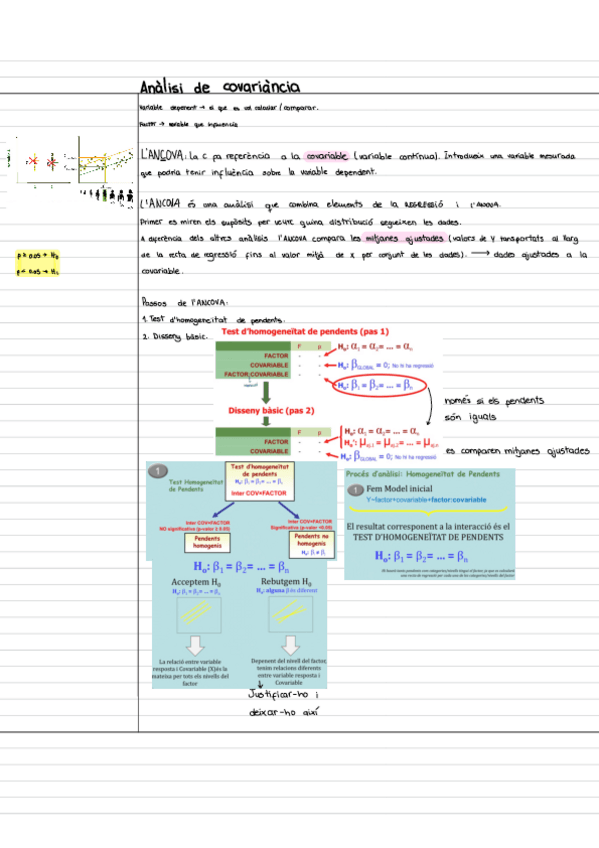 Anàlisi de covariància
Variable depenent → el que es vol calcular/comparar.
Factor → variable que influencia
L'ANCOVA: la C fa referència a la covariable (variable contínua). Introdueix una variable mesurada
que podria tenir influència sobre la variable dependent.
L'ANCOVA és una anàlisi que combina elements de la REGRESSIÓ i l'ANOVA.
Primer es miren els supòsits per veure quina distribució segueixen les dades.
A diferència dels altres anàlisis l'ANCOVA compara les mitjanes ajustades (valors de Y transportats al llarg
de la recta de regressió fins al valor mitjà de x per conjunt de les dades). → dades ajustades a la
covariable.
p ≥ 0.05 → H₀
p < 0.05 → H₁
Passos de l'ANCOVA:
1. Test d'homogeneïtat de pendents.
2. Disseny bàsic.
Test d'homogeneïtat de pendents (pas 1)
F p
FACTOR - - H₀: α₁ = α₂= ... = αₙ
COVARIABLE - - H₀: β_GLOBAL = 0; No hi ha regressió
FACTOR:COVARIABLE - - H₀: β₁ = β₂= ... = βₙ
només si els pendents
són iguals
Disseny bàsic (pas 2)
F p
FACTOR - - H₀: α₁ = α₂= ... = αₙ
H₀': μ_aj,1 = μ_aj,2= ... = μ_aj,n
es comparen mitjanes ajustades
COVARIABLE - - H₀: β_GLOBAL = 0; No hi ha regressió
1
Test Homogeneïtat
de Pendents
Test d'homogeneïtat
de pendents
H₀: β₁ = β₂= ... = βₙ
Inter COV*FACTOR
Inter COV*FACTOR
NO significativa (p-valor ≥ 0.05)
Inter COV*FACTOR
Significativa (p-valor <0.05)
Pendents
homogenis
Pendents no
homogenis
H₁: βᵢ ≠ βⱼ
H₀: β₁ = β₂= ... = βₙ
Acceptem H₀
H₀: β₁ = β₂= ... = βₙ
Rebutgem H₀
H₁: alguna β és diferent
La relació entre variable
resposta i Covariable (X)és la
mateixa per tots els nivells del
factor
Depenent del nivell del factor,
tenim relacions diferents
entre variable resposta i
Covariable
Justificar-ho i
deixar-ho així
Procés d'anàlisi: Homogeneïtat de Pendents
1 Fem Model inicial
Y~factor+covariable+factor:covariable
El resultat corresponent a la interacció és el
TEST D'HOMOGENEÏTAT DE PENDENTS
H₀: β₁ = β₂= ... = βₙ